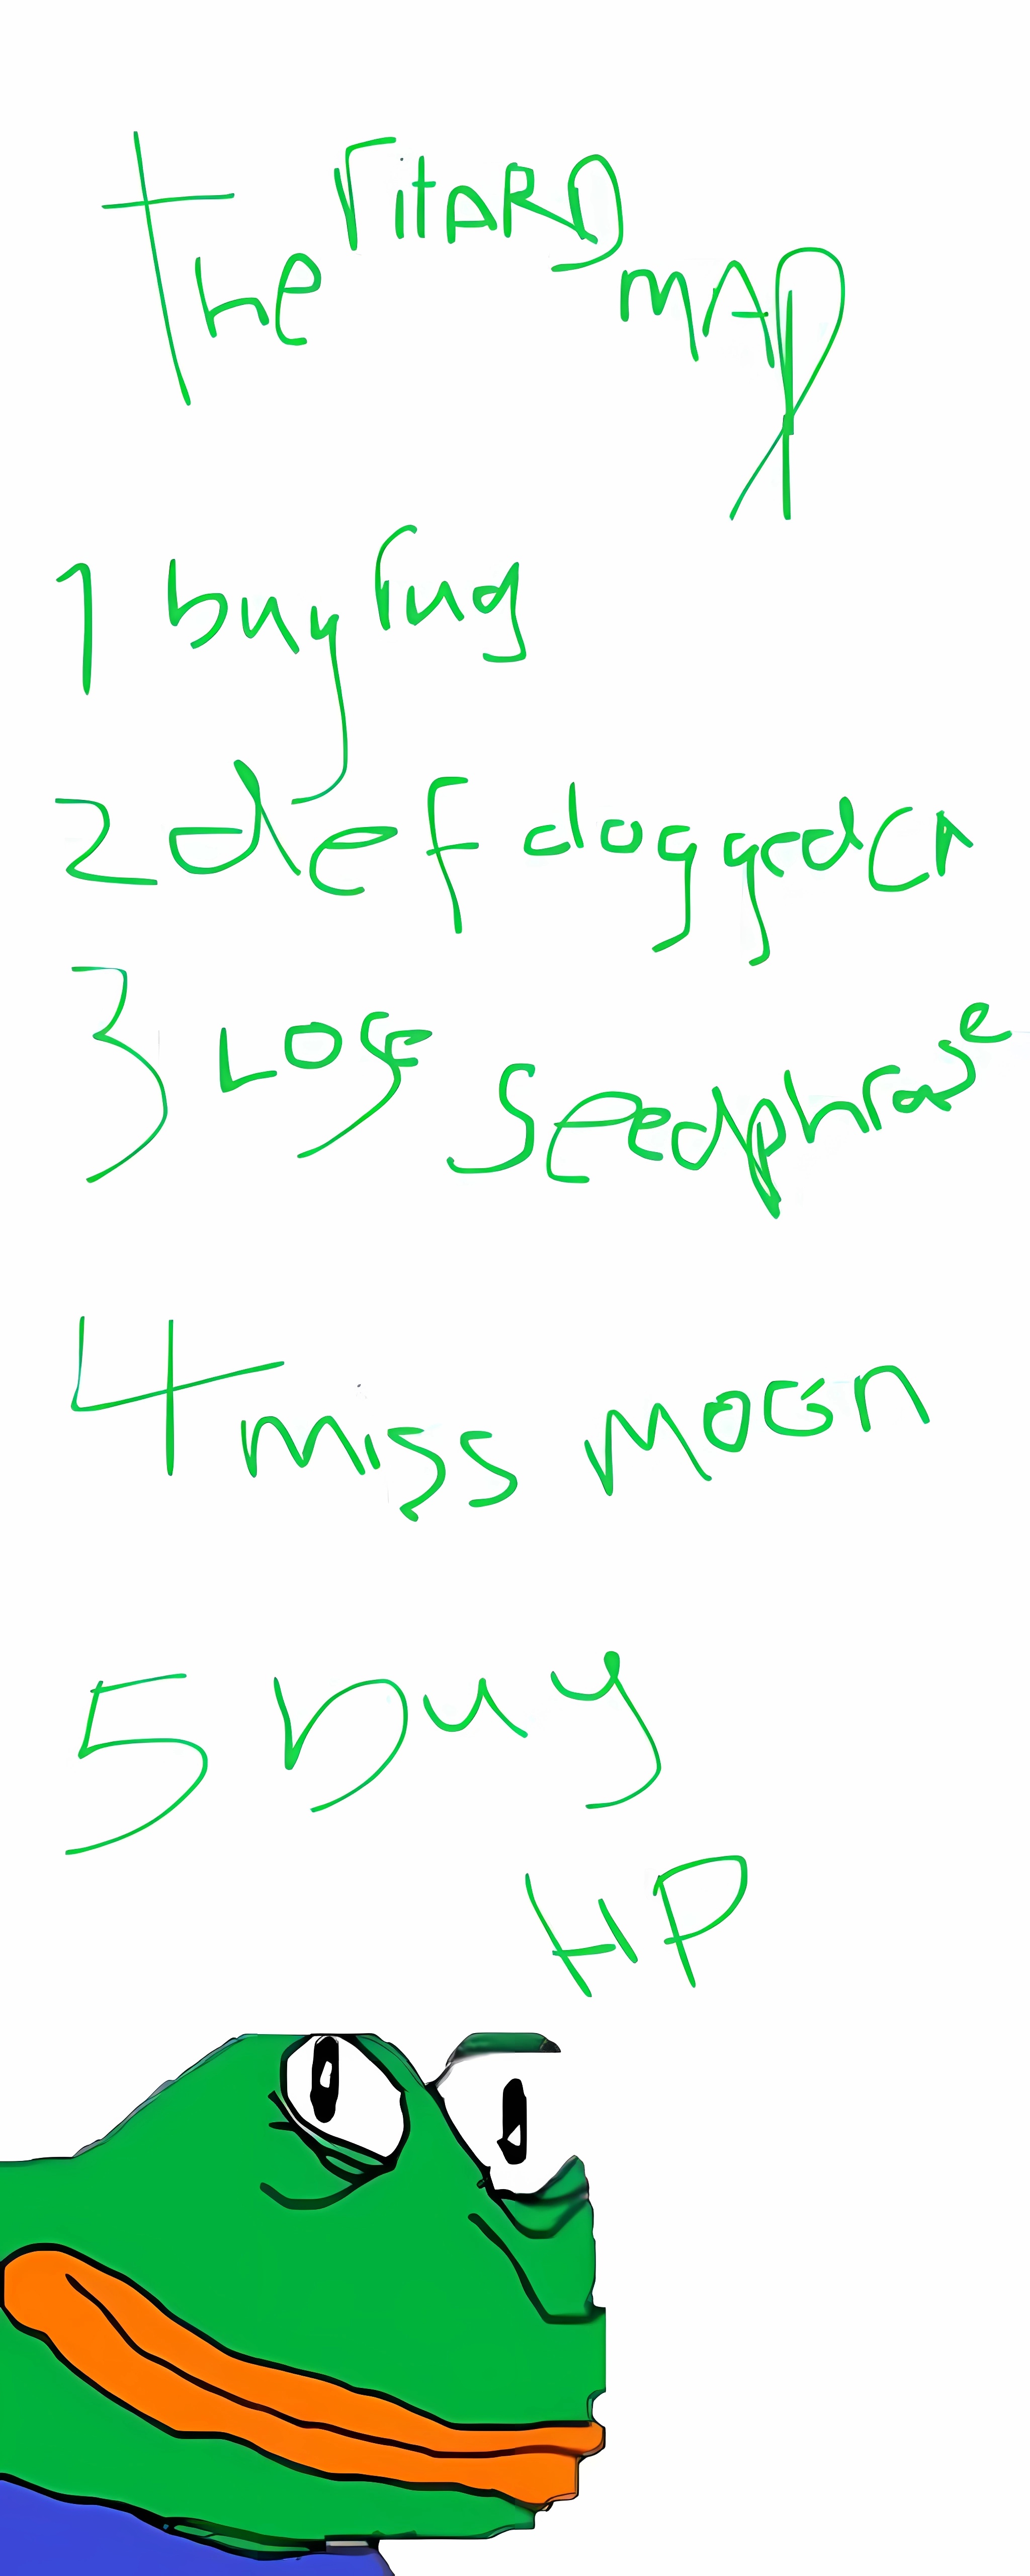 the ritARD mAp
1 buy rug
2 def doggedCA
3 LOSE Seedphrase
4 miss moon
5 buy
HP